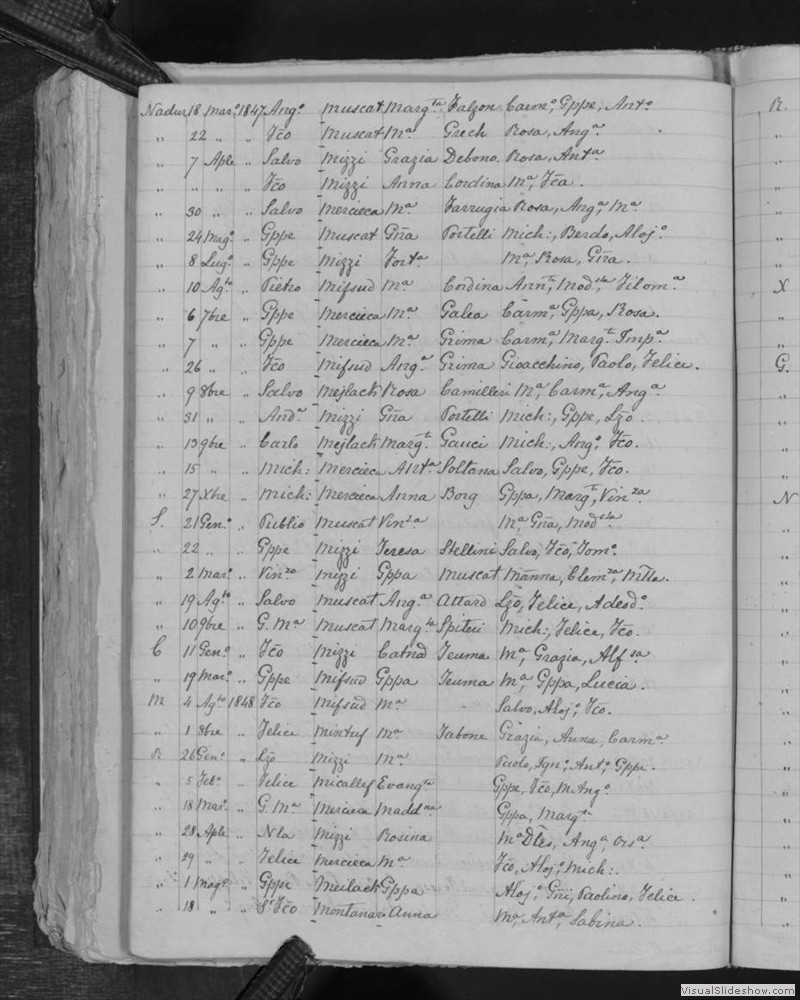 Nadur 18 Mar.o 1847 Ang.o Muscat Marg.ta Falzon Carm.o, Gppe, Ant.o
" 22 " " Fco Muscat M.a Grech Rosa, Ang.a
" 7 Aple " Salvo Mizzi Grazia Debono Rosa, Ant.a
" " " " Fco Mizzi Anna Cordina M.a, Fca.
" 30 " " Salvo Mercieca M.a Farrugia Rosa, Ang.a, M.a
" 24 Mag.o " Gppe Muscat Gna Portelli Mich:, Berdo, Aloj.o
" 8 Lug.o " Gppe Mizzi Fort.a M.a, Rosa, Gna.
" 10 Ag.to " Pietro Mifsud M.a Cordina Ann.ta, Mod.sta, Filom.a
" 6 7bre " Gppe Mercieca M.a Galea Carm.a, Gppa, Rosa.
" 7 " " Gppe Mercieca M.a Grima Carm.a, Marg.t, Imp.a
" 26 " " Fco Mifsud Ang.a Grima Gioacchino, Paolo, Felice.
" 9 8bre " Salvo Mejlach Rosa Camilleri M.a, Carm.a, Ang.a
" 31 " " And.a Mizzi Gna Portelli Mich:, Gppe, Lzo.
" 13 9bre " Carlo Mejlach Marg.t Gauci Mich:, Ang.o, Fco.
" 15 " " Mich: Mercieca Ant.a Soltana Salvo, Gppe, Fco.
" 27 Xbre " Mich: Mercieca Anna Borg Gppa, Marg.t, Vin.za
S. 21 Gen.o " Publio Muscat Vin.za M.a, Gna, Mod.sta
" 22 " " Gppe Mizzi Teresa Stellini Salvo, Fco, Tom.o
" 2 Mar.o " Vin.zo Mizzi Gppa Muscat Manna, Clem.za, Mtta.
" 19 Ag.to " Salvo Muscat Ang.a Attard Lzo, Felice, Adeod.o
" 10 9bre " G. M.a Muscat Marg.ta Spiteri Mich:, Felice, Fco.
C 11 Gen.o " Fco Mizzi Catna Teuma M.a, Grazia, Alf.sa
" 19 Mar.o " Gppe Mifsud Gppa Teuma M.a, Gppa, Lucia.
M 4 Ag.to 1848 Fco Mifsud M.a Salvo, Aloj.o, Fco.
" 1 8bre " Felice Mintuf M.a Tabone Grazia, Anna, Carm.a
R 26 Gen.o " Lzo Mizzi M.a Paolo, Ign.o, Ant.o, Gppe.
" 5 Feb.o " Felice Micallef Evang.ta Gppe, Fco, M. Ang.o
" 18 Mar.o " G. M.a Mercieca Madd.na Gppa, Marg.t
" 28 Aple " Nla Mizzi Rosina M.a Dles, Ang.a, Ors.a
" 29 " " Felice Mercieca M.a Fco, Aloj.o, Mich:.
" 1 Mag.o " Gppe Meilach Gppa Aloj.o, Gni, Paolino, Felice.
" 18 " " S.r Fco Montanaro Anna M.a, Ant.a, Sabina.
R.
X
G.
N
VisualSlideshow.com